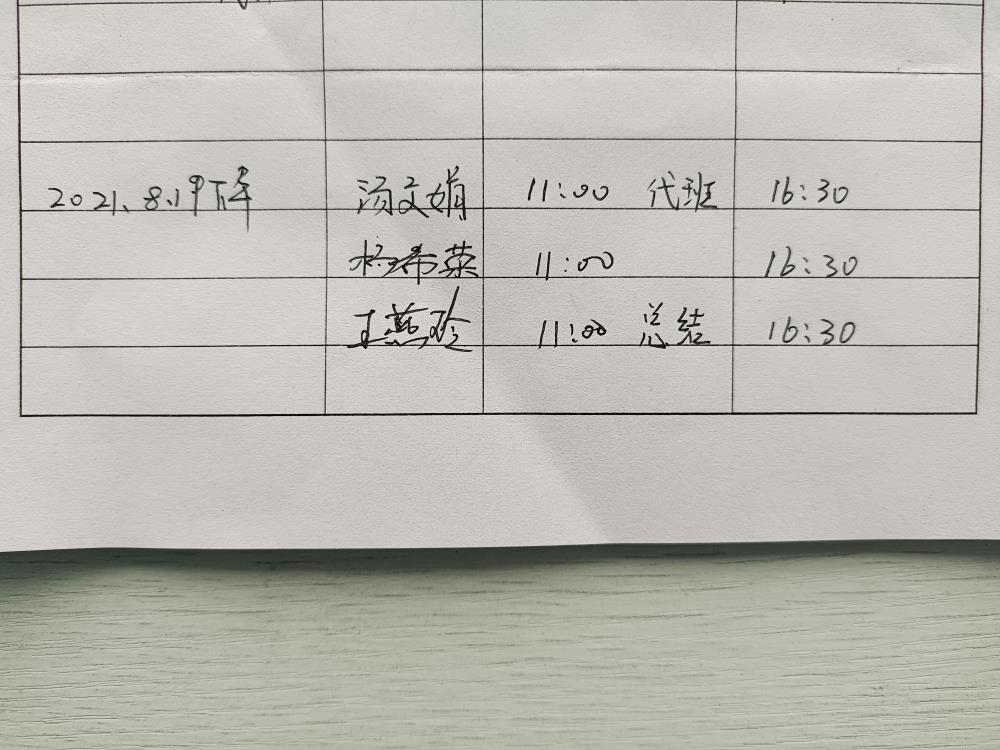 2021.8.19下午 汤文娟 11:00 代班 16:30
杨希荣 11:00 16:30
王燕玲 11:00 总结 16:30